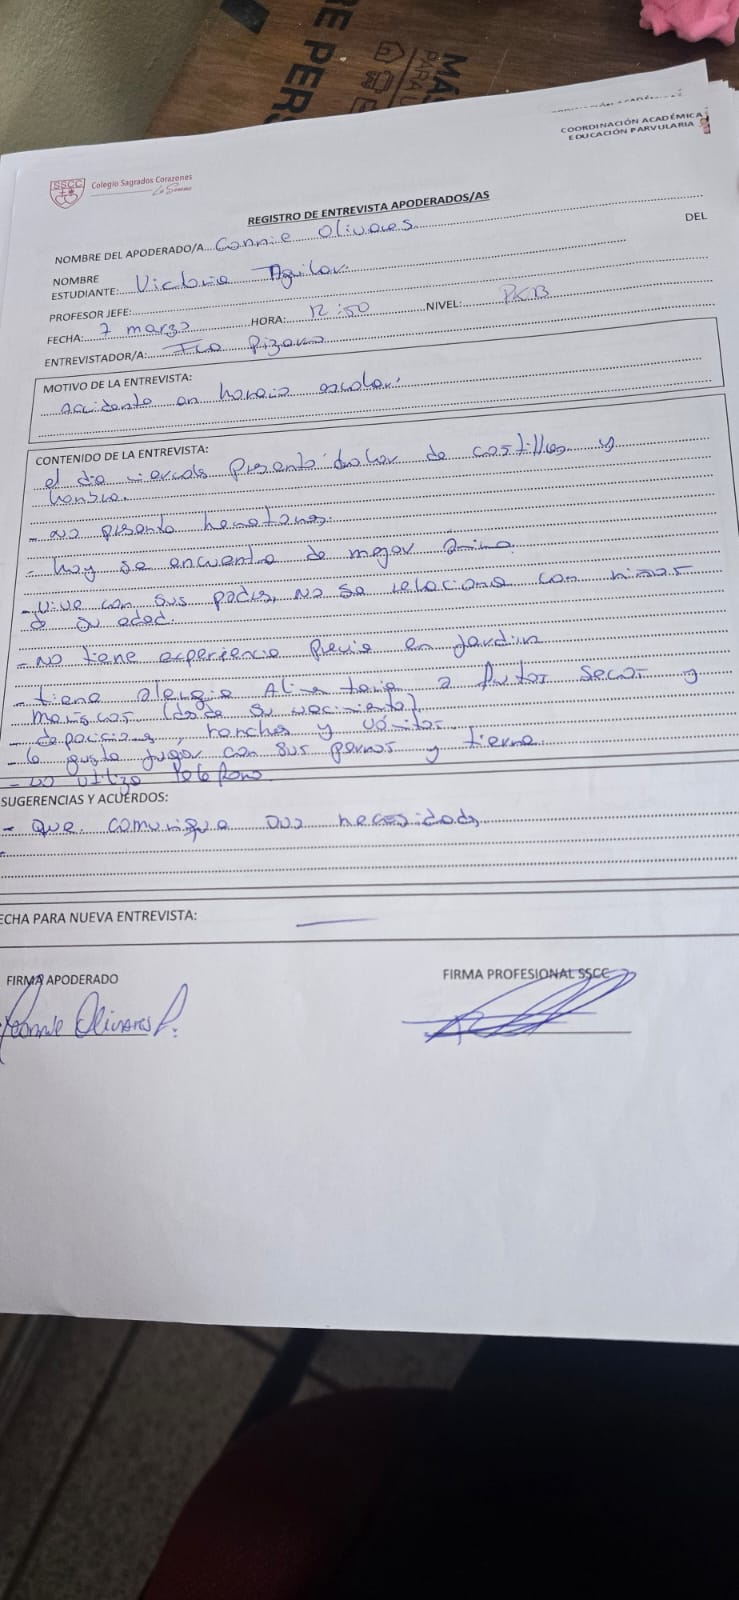 RE PER
MÁS
PARA
COORDINACIÓN ACADÉMICA
EDUCACIÓN PARVULARIA
SSCC
Colegio Sagrados Corazones
La Serena
REGISTRO DE ENTREVISTA APODERADOS/AS
NOMBRE DEL APODERADO/A Connie Olivares
NOMBRE DEL
ESTUDIANTE: Victoria Aguilar
PROFESOR JEFE:
FECHA: 7 marzo HORA: 12:50 NIVEL: PKB
ENTREVISTADOR/A: Fca Pizarro
MOTIVO DE LA ENTREVISTA:
accidente en horario escolar.
CONTENIDO DE LA ENTREVISTA:
el dia presento dolor de costillas y
hombro.
- no presento hematomas.
- hoy se encuentra de mejor ánimo.
- vive con sus padres, no se relaciona con niños
de su edad.
- no tiene experiencia previa en jardin
- tiene alergia alimentaria a frutos secos y
mariscos (desde su nacimiento)
- deposiciones, ronchas y vómitos
- le gusta jugar con sus perros y tierra
- no utiliza teléfono
SUGERENCIAS Y ACUERDOS:
- Que comunique sus necesidades
-
ECHA PARA NUEVA ENTREVISTA:
FIRMA APODERADO
FIRMA PROFESIONAL SSCC
Connie Olivares P.